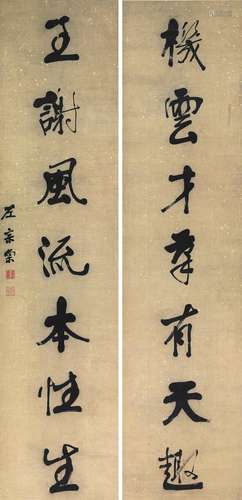 機雲才藻有天趣
王謝風流本性生
左宗棠